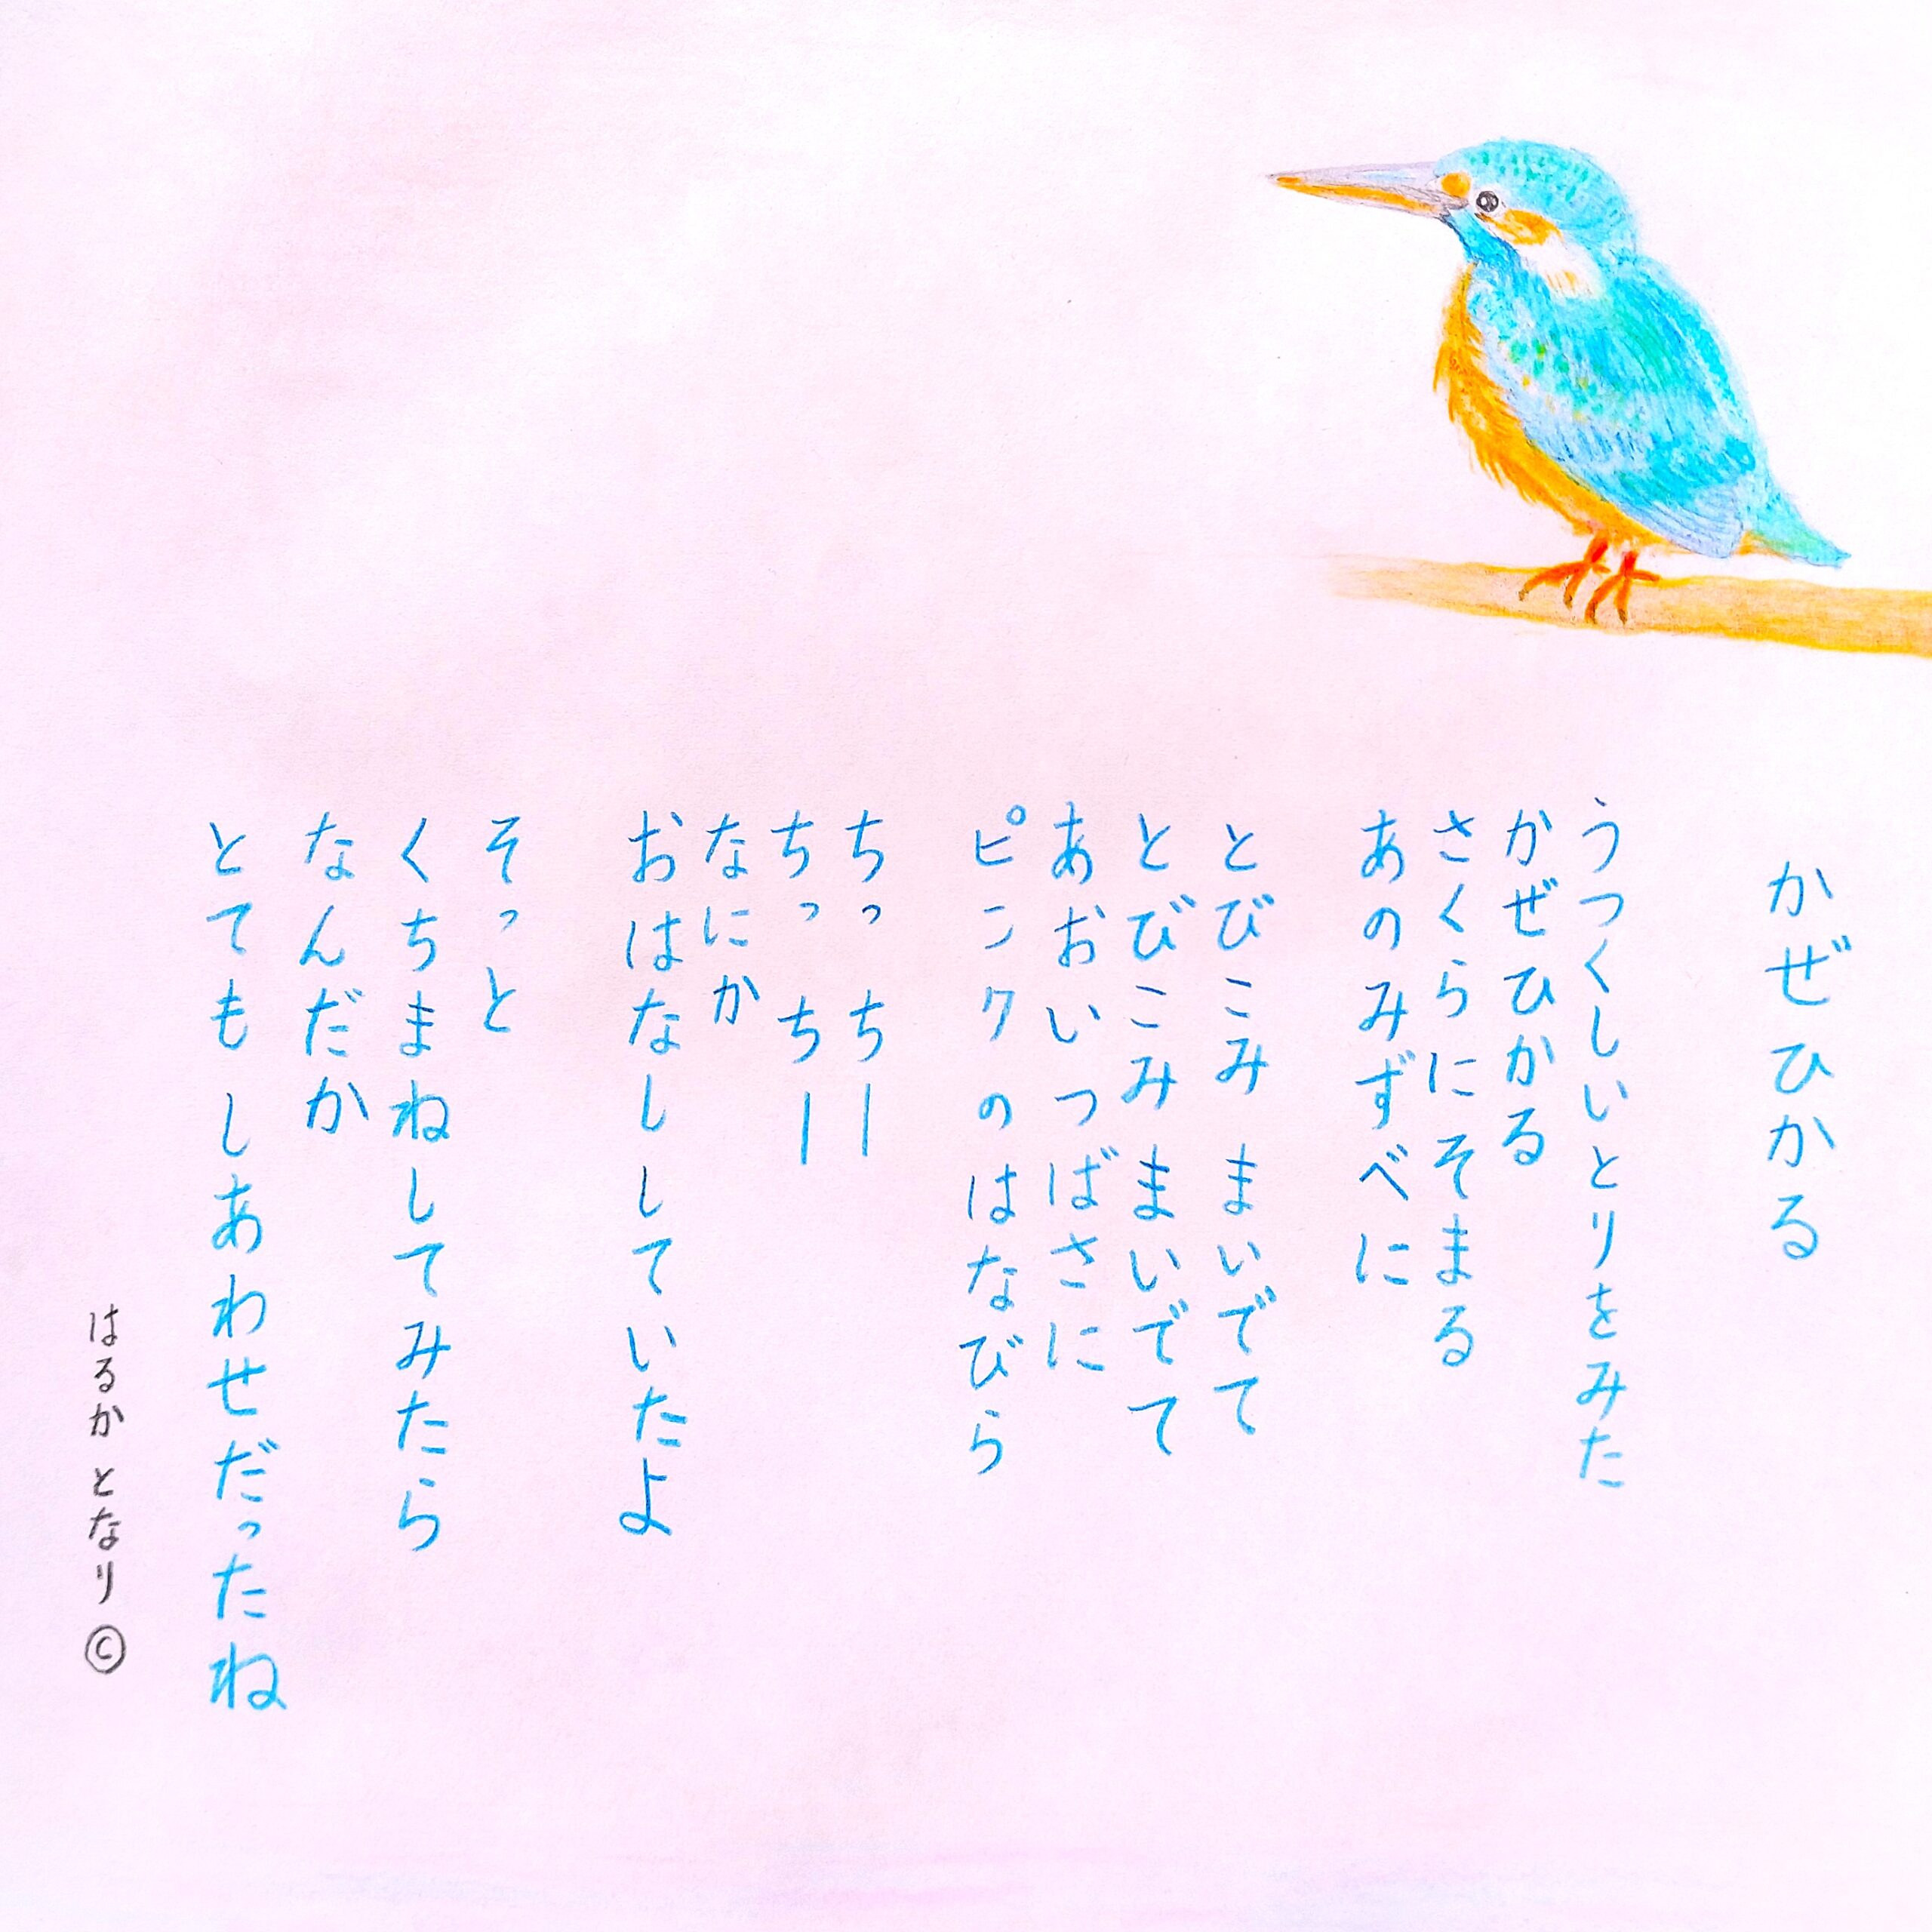 かぜひかる
うつくしいとりをみた
かぜひかる
さくらにそまる
あのみずべに
とびこみ まいでて
とびこみ まいでて
あおいつばさに
ピンクのはなびら
ちっちー
ちっちー
なにか
おはなししていたよ
そっと
くちまねしてみたら
なんだか
とてもしあわせだったね
はるか となり ©